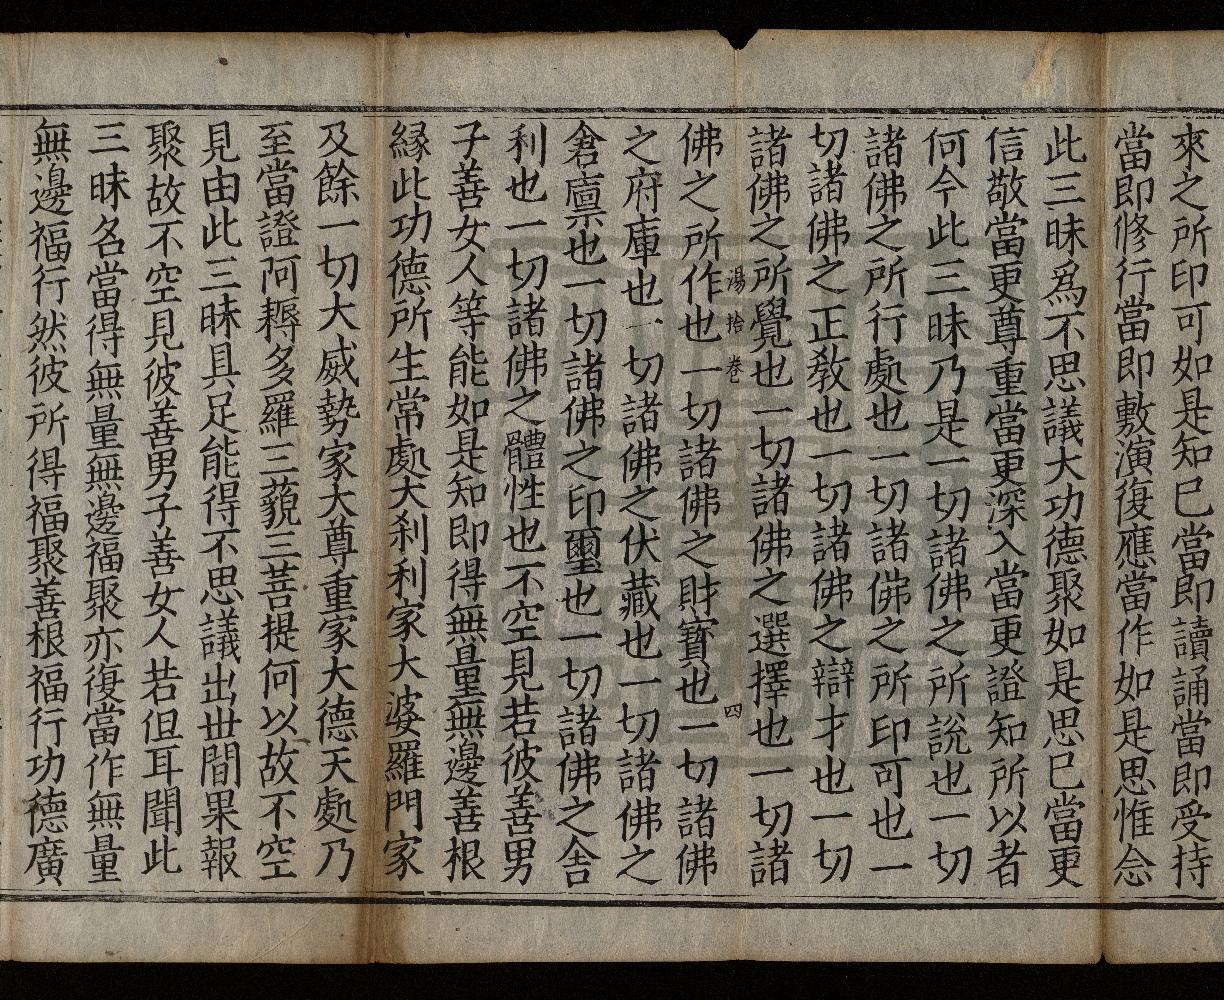 來之所印可如是知已當即讀誦當即受持
當即修行當即敷演復應當作如是思惟念
此三昧爲不思議大功德聚如是思已當更
信敬當更尊重當更深入當更證知所以者
何今此三昧乃是一切諸佛之所說也一切
諸佛之所行處也一切諸佛之所印可也一
切諸佛之正教也一切諸佛之辯才也一切
諸佛之所覺也一切諸佛之選擇也一切諸
湯 拾卷 四
佛之所作也一切諸佛之財寶也一切諸佛
之府庫也一切諸佛之伏藏也一切諸佛之
倉廩也一切諸佛之印璽也一切諸佛之舍
利也一切諸佛之體性也不空見若彼善男
子善女人等能如是知即得無量無邊善根
縁此功德所生常處大刹利家大婆羅門家
及餘一切大威勢家大尊重家大德天處乃
至當證阿耨多羅三藐三菩提何以故不空
見由此三昧具足能得不思議出世間果報
聚故不空見彼善男子善女人若但耳聞此
三昧名當得無量無邊福聚亦復當作無量
無邊福行然彼所得福聚善根福行功德廣